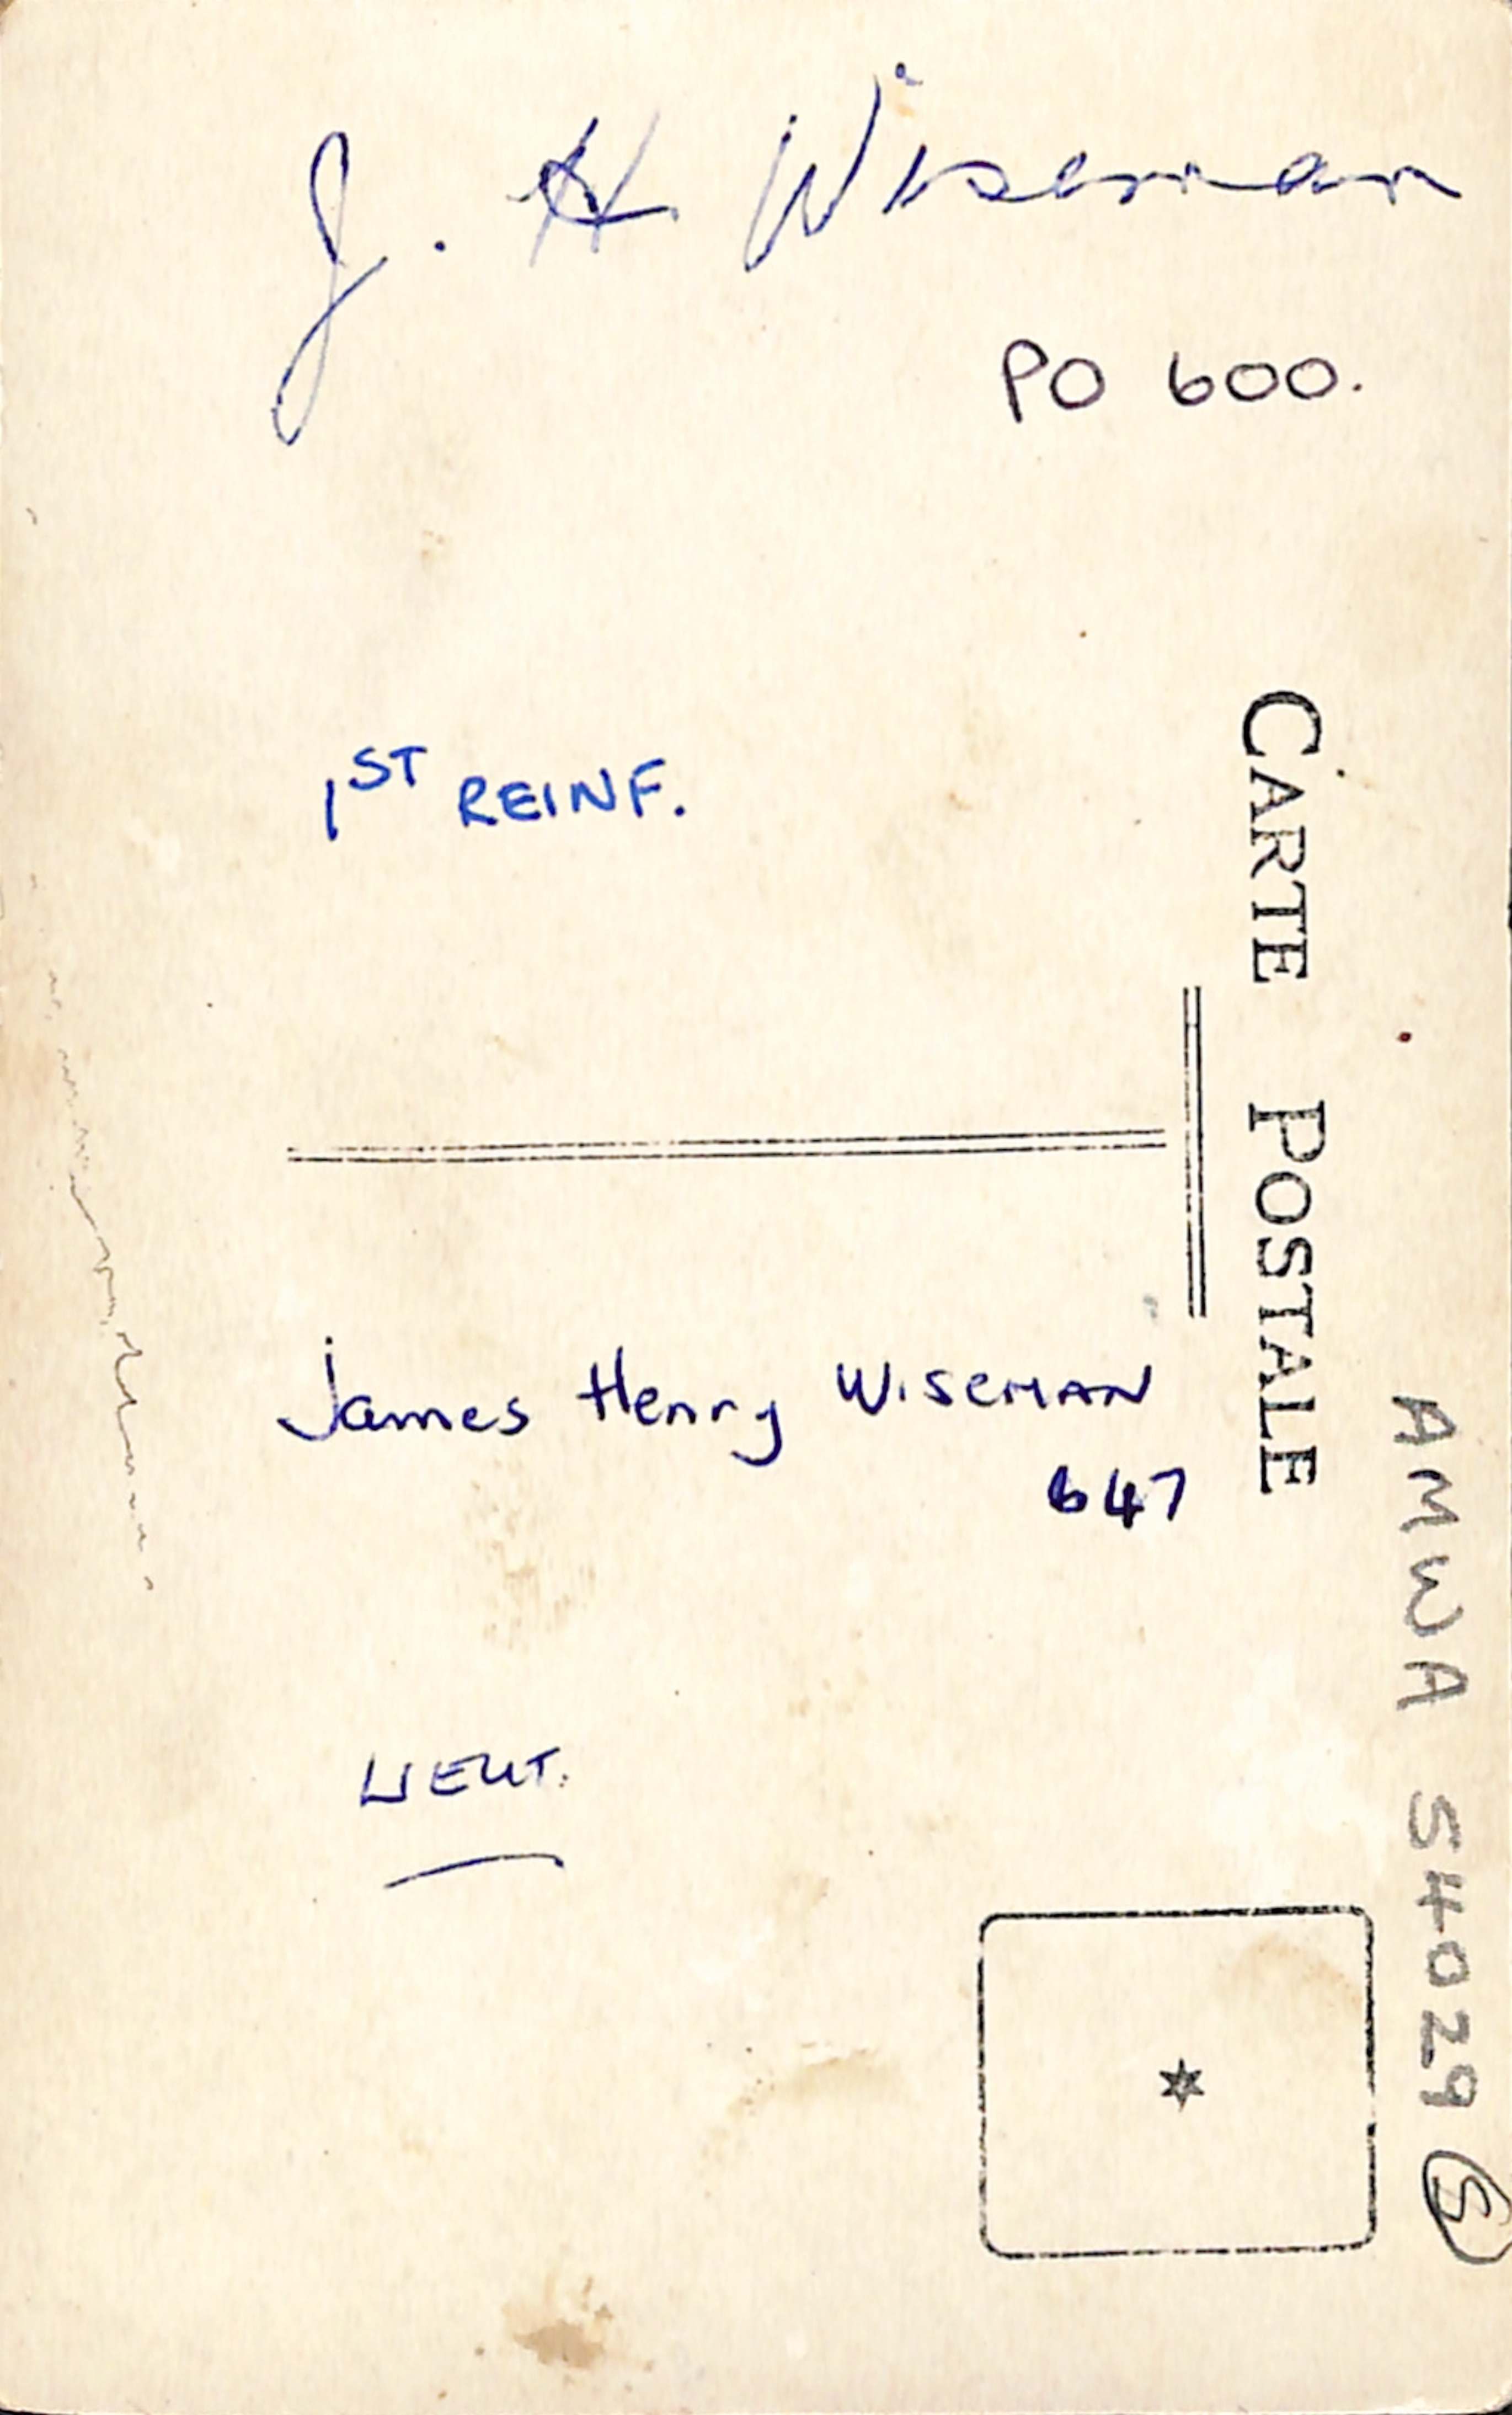 J. H Wiseman
PO 600.
1ST REINF.
CARTE POSTALE
James Henry WISEMAN
647
LIEUT.
AMWA S4029 S